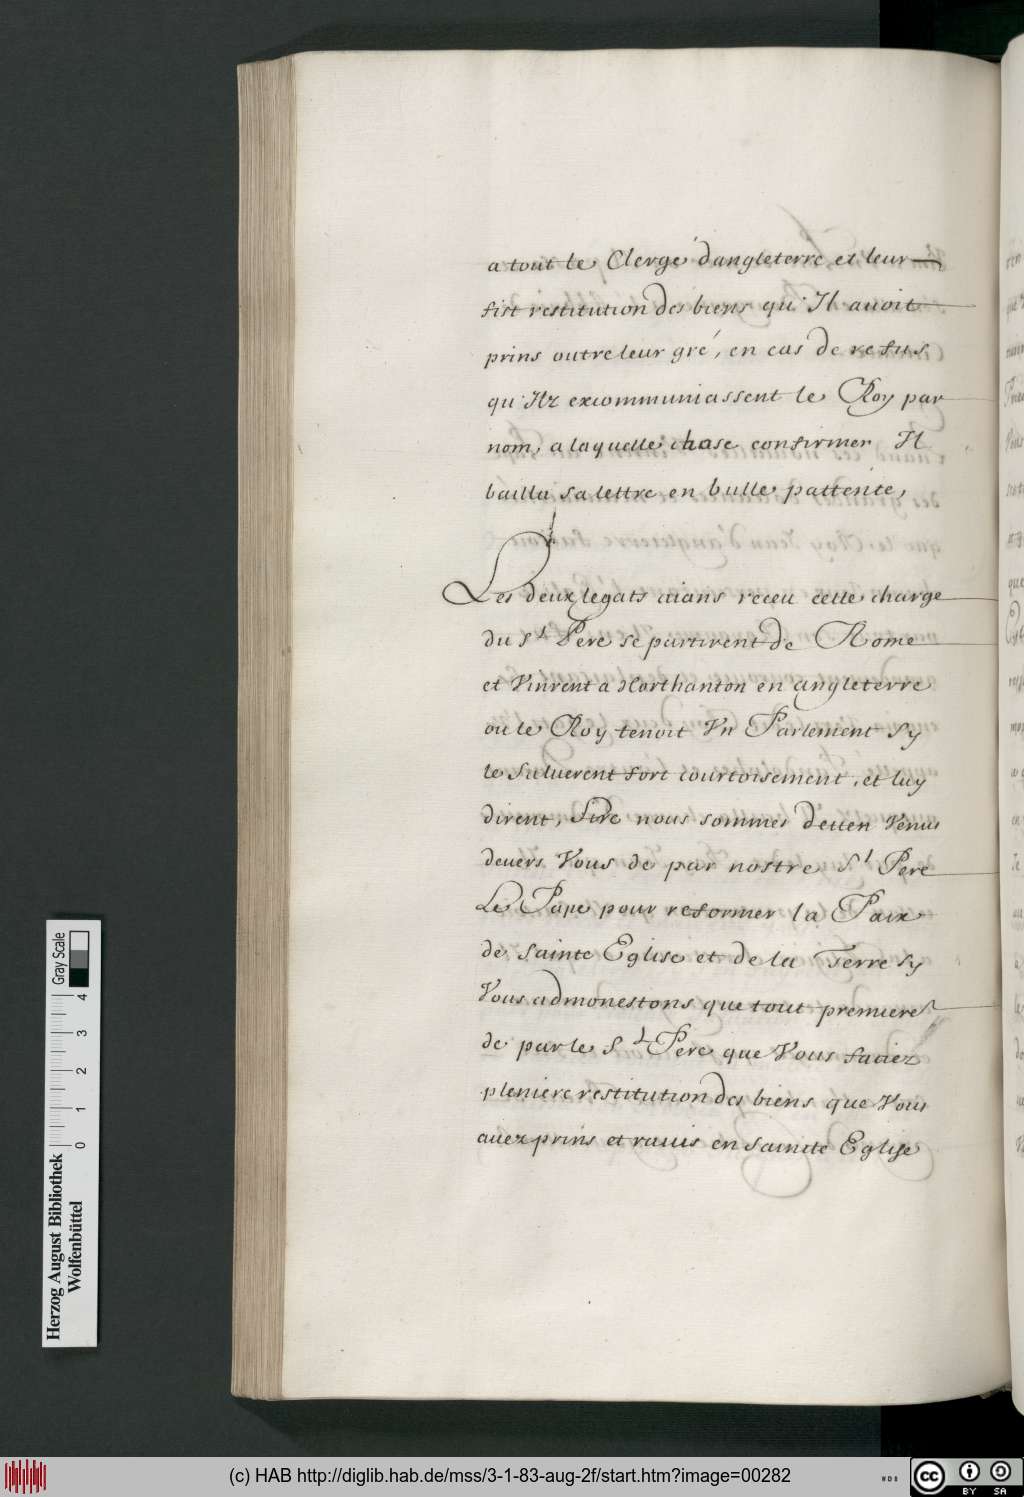 a tout le Clergé d'angleterre et leur
fist restitution des biens qu'Il avoit
prins outre leur gré, en cas de refus
qu'Ilz excommuniassent le Roy par
nom, a laquelle chose confirmer Il
bailla sa lettre en bulle pattente,
Les deux legats aians receu celle charge
du St Pere se partirent de Rome
et Vinrent a Northanton en angleterre
ou le Roy tenoit Vn Parlement sy
le saluerent fort courtoisement, et luy
dirent, Sire nous sommes Venus
deuers Vous de par nostre St Pere
Le Pape pour reformer la Paix
de sainte Eglise et de la Terre sy
Vous admonestons que tout premiere
de par le St Pere que Vous faciez
pleniere restitution des biens que Vous
auez prins et rauis en saincte Eglise
Gray Scale
0 1 2 3 4
Herzog August Bibliothek
Wolfenbüttel
(c) HAB http://diglib.hab.de/mss/3-1-83-aug-2f/start.htm?image=00282
WDB
cc BY SA